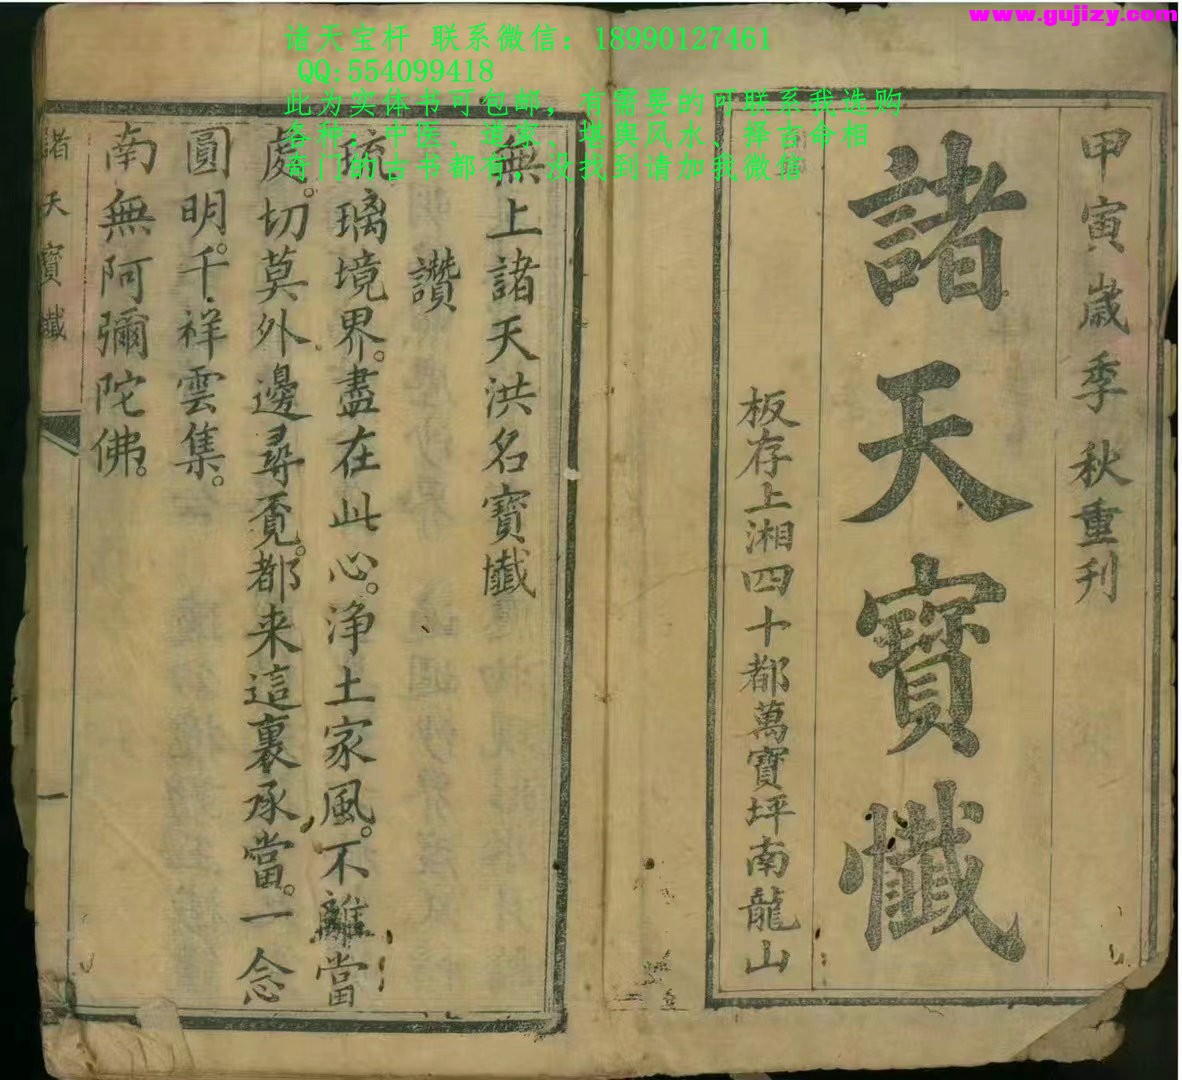 www.gujizy.com
诸天宝杆 联系微信：18990127461
QQ:554099418
此为实体书可包邮，有需要的可联系我选购
各种：中医、道家、堪舆风水、择吉命相
奇门的古书都有，没找到请加我微信
甲寅歲季秋重刊
諸天寶懺
板存上湘四十都萬寶坪南龍山
無上諸天洪名寶懺
讚
琉璃境界。盡在此心。淨土家風。不離當
處。切莫外邊尋覔。都来這裏承當。一念
圓明。千祥雲集。
南無阿彌陀佛。
諸天寶懺
一